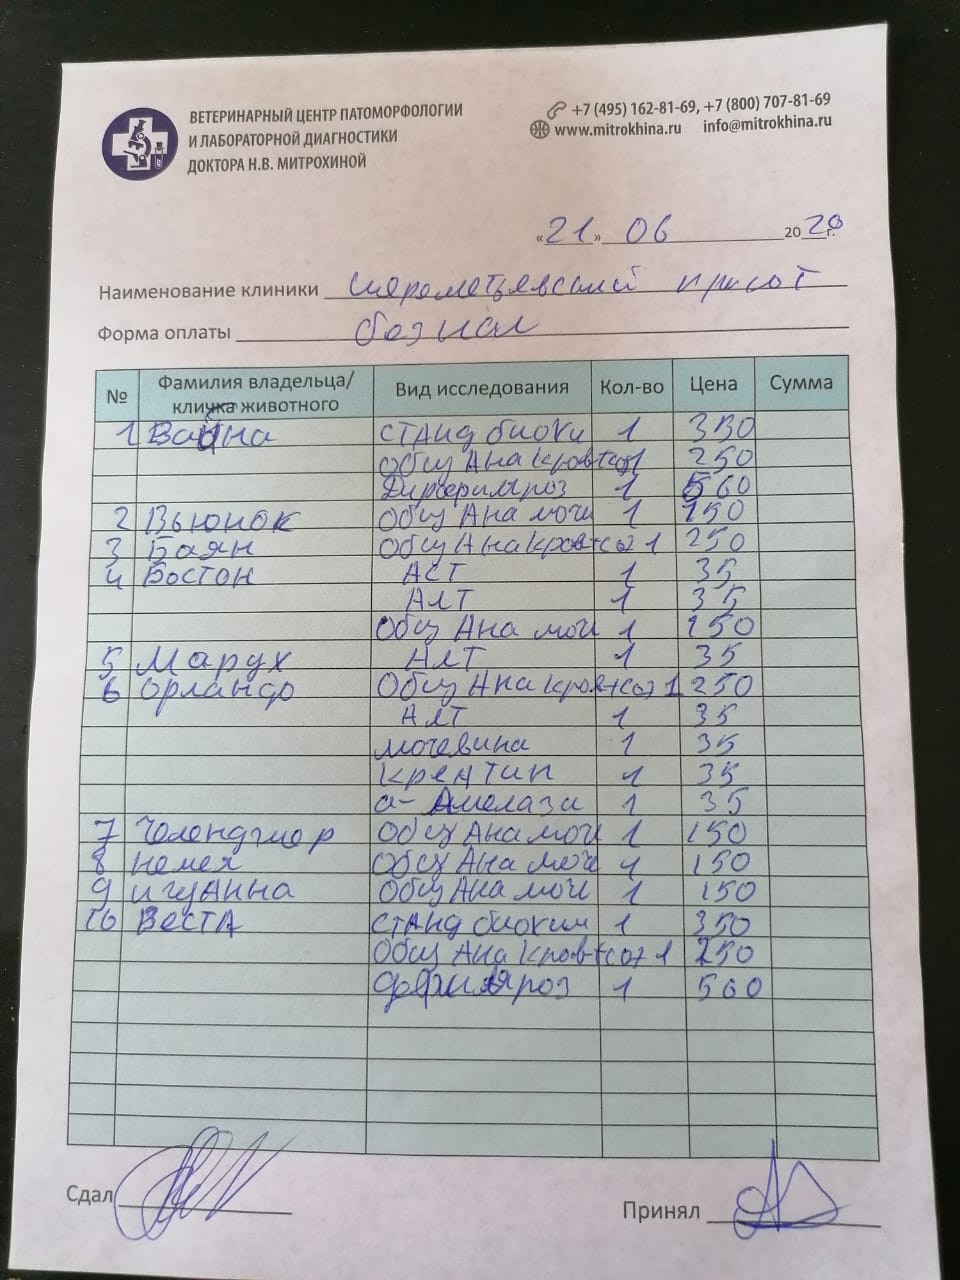 ВЕТЕРИНАРНЫЙ ЦЕНТР ПАТОМОРФОЛОГИИ
И ЛАБОРАТОРНОЙ ДИАГНОСТИКИ
ДОКТОРА Н.В. МИТРОХИНОЙ
+7 (495) 162-81-69, +7 (800) 707-81-69
www.mitrokhina.ru info@mitrokhina.ru
«21» 06 2020г.
Наименование клиники Шереметьевский приют
Форма оплаты безнал
№ Фамилия владельца/ кличка животного Вид исследования Кол-во Цена Сумма
1 станд биохи 1 350
Общ Ана кров+соэ 1 250
1 560
2 Вьюнок Общ Ана мочи 1 150
3 Баян Общ Ана кров+соэ 1 250
4 Бостон АСТ 1 35
АЛТ 1 35
Общ Ана мочи 1 150
5 Марух АЛТ 1 35
6 Орландо Общ Ана кров+соэ 1 250
АЛТ 1 35
мочевина 1 35
1 35
а-Амелаза 1 35
7 Челенджер Общ Ана мочи 1 150
8 Немех Общ Ана мочи 1 150
9 Общ Ана мочи 1 150
10 Веста станд биохим 1 350
Общ Ана кров+соэ 1 250
1 560
Сдал
Принял